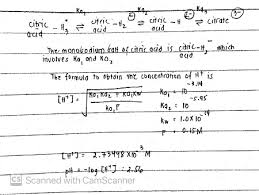 Ka₁ Ka₂ Ka₃
citric acid - H₃ ⇌ citric acid - H₂⁻ ⇌ citric acid - H²⁻ ⇌ citrate³⁻
The monosodium salt of citric acid is citric acid - H₂⁻ which
involves Ka₁ and Ka₂
The formula to obtain the concentration of H⁺ is
[H⁺] = √((Ka₁ Ka₂ P + Ka₁ Kw) / (Ka₁ + P))
Ka₁ = 10
Ka₂ = 10
Kw = 1.0 x 10⁻¹⁴
P = 0.15M
[H⁺] = 2.73448 x 10⁻³ M
pH = -log [H⁺] : 2.56
CS Scanned with CamScanner